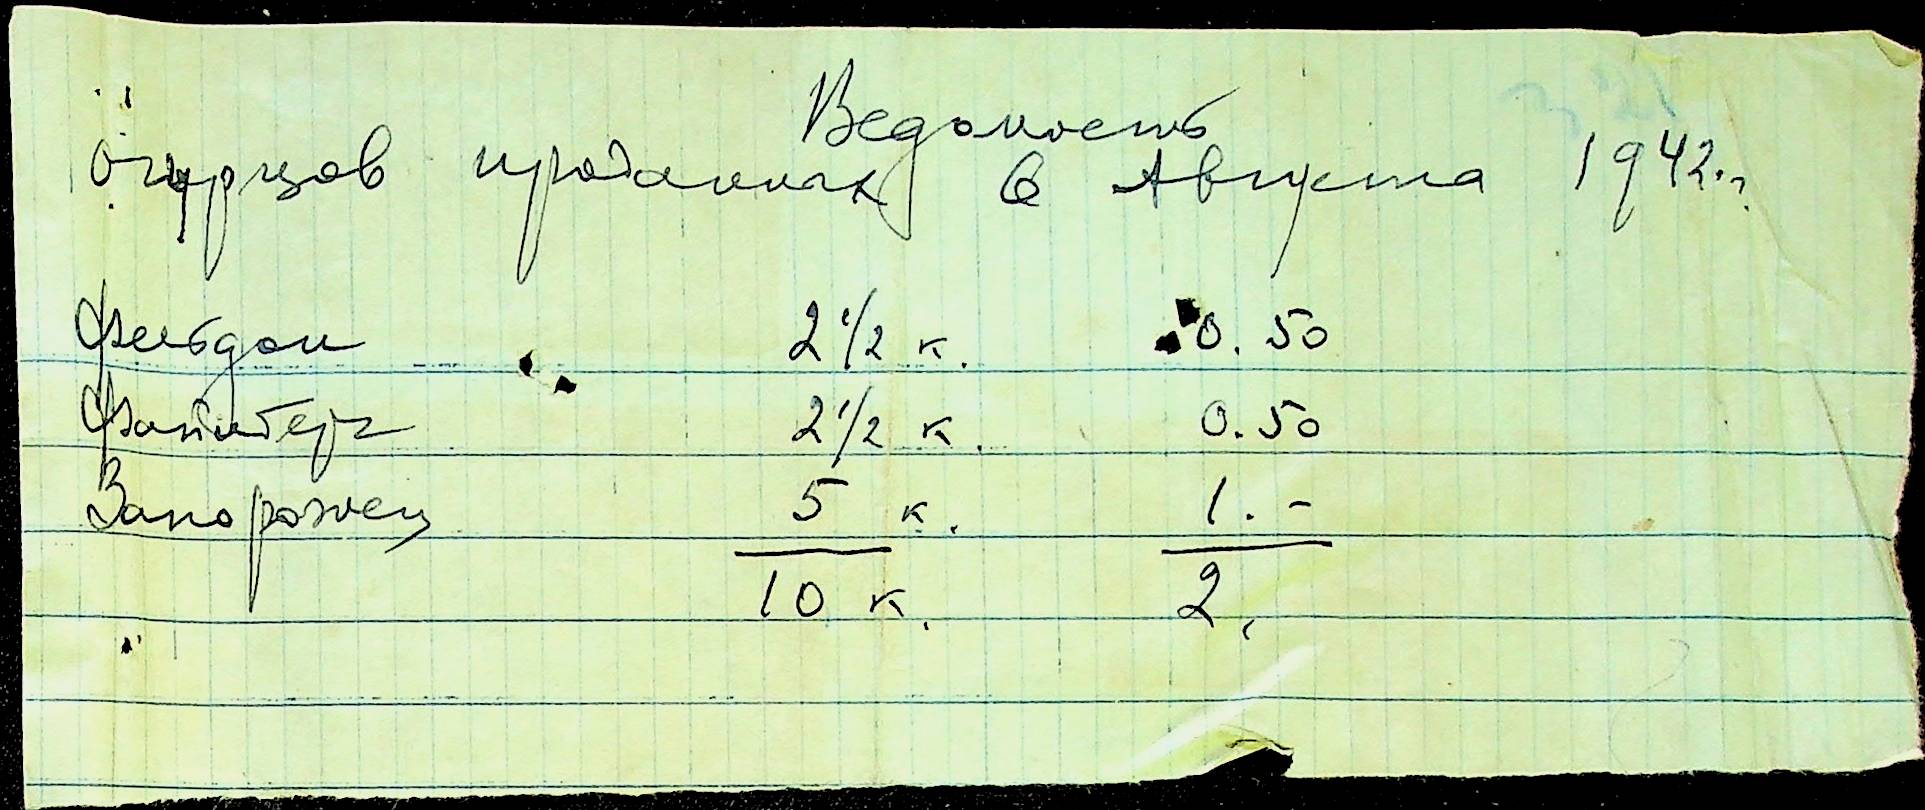 Ведомость
Огурцов проданных 6 Августа 1942 г.
Фельдон 2 1/2 к. 0.50
Файнберг 2 1/2 к. 0.50
Запорожец 5 к. 1.-
10 к. 2.